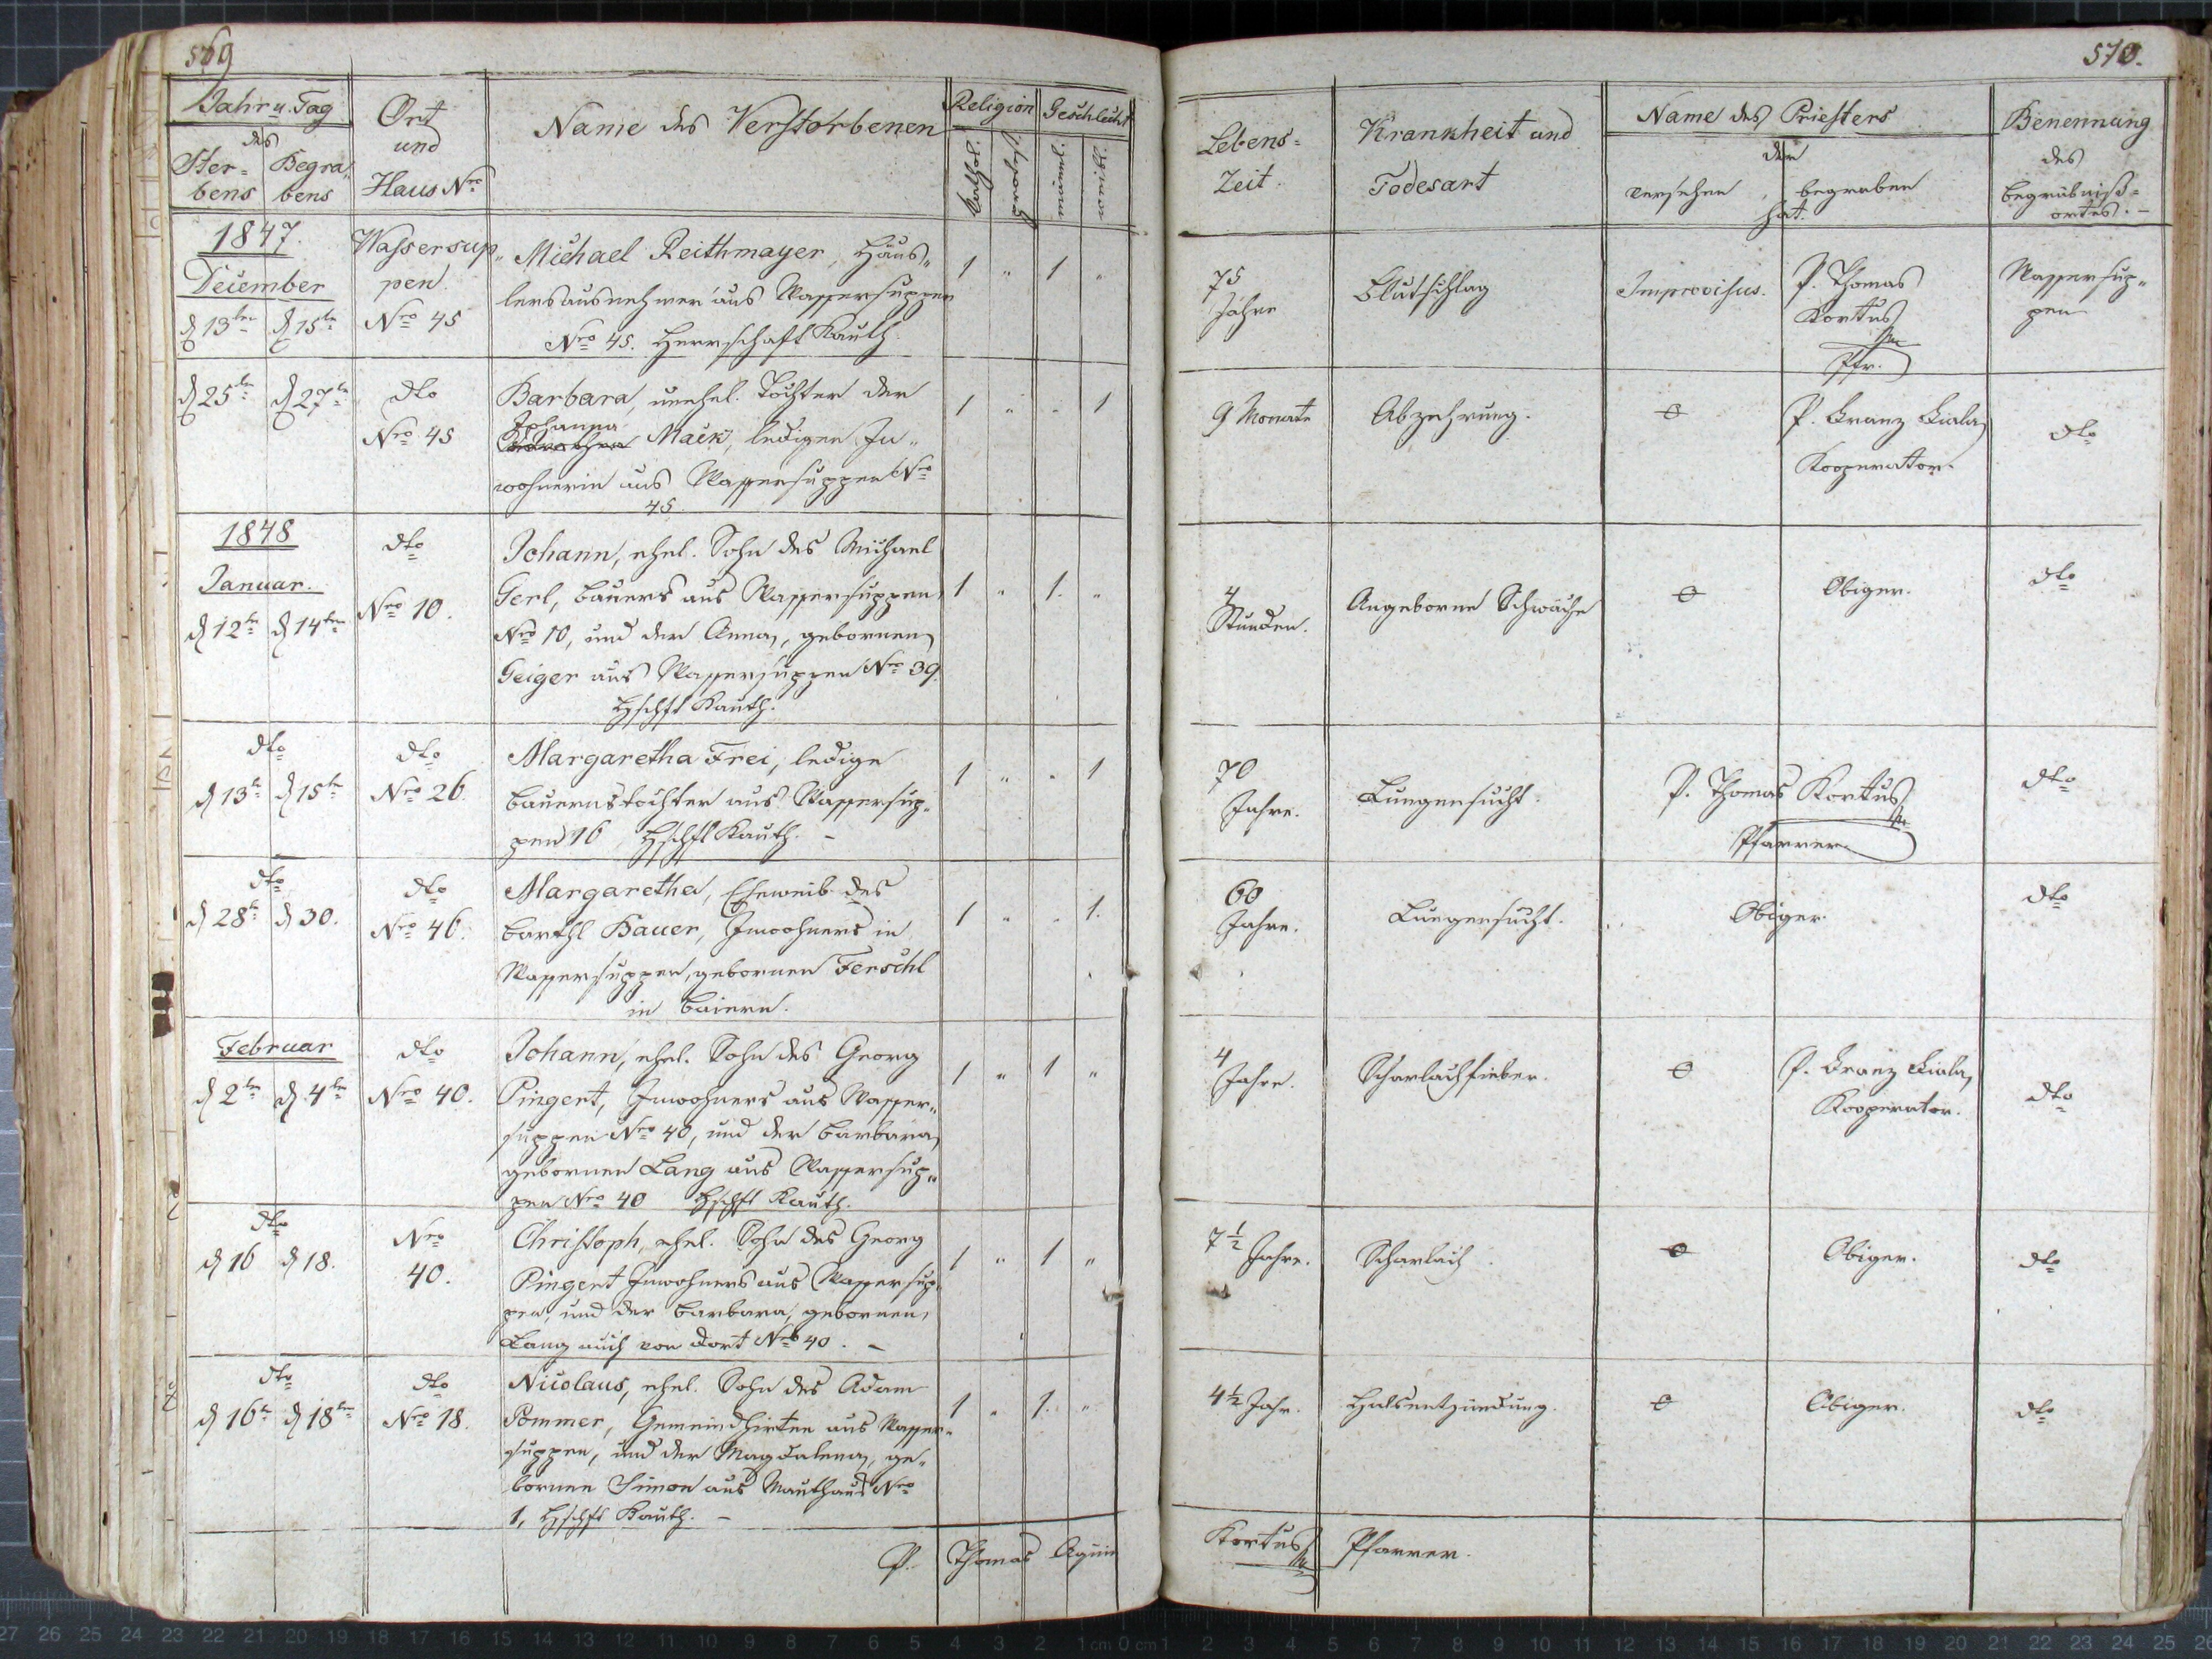 569
Jahr u. Tag
des
Ster= Begra„
bens bens
Ort
und
Haus Nro
Name des Verstorbenen
Religion
kathol:
Geschlecht
männl:
weibl:
1847.
December
d 13ten d 15ten
Wassersup„
pen
Nro 45
Michael Reithmayer, Häus„
lersausnehmer aus Wassersuppen
Nro 45. Herrschaft Kauth.
1 „ 1 „
d 25ten d 27ten
dto
Nro 45
Barbara, unehel. Tochter der
Johanna
Mack, ledigen In„
wohnerin aus Wassersuppen Nro
45.
1 „ „ 1
1848
Januar.
d 12ten d 14ten
dto
Nro 10.
Johann, ehel. Sohn des Michael
Gerl, Bauers aus Wassersuppen
Nro 10, und der Anna, gebornen
Geiger aus Wassersuppen Nro 39.
Hschft Kauth.
1 „ 1. „
dto
d 13t d 15ten
dto
Nro 26.
Margaretha Frei, ledige
Bauerstochter aus Wassersup„
pen 16, Hschft Kauth. –
1 „ „ 1
dto
d 28t d 30.
dto
Nro 46.
Margaretha, Eheweib des
Barthl Bauer, Inwohners in
Wassersuppen, gebornen Ferschl
in Baiern.
1 „ „ 1.
Februar
d 2ten d 4ten
dto
Nro 40.
Johann, ehel. Sohn des Georg
Pingert, Inwohners aus Wasser„
suppen Nro 40, und der Barbara,
gebornen Lang aus Wassersup„
pen Nro 40 Hschft Kauth.
1 „ 1 „
dto
d 16 d 18.
Nro
40.
Christoph, ehel. Sohn des Georg
Pingert Inwohners aus Wassersup„
pen, und der Barbara, gebornen
Lang auch von dort Nro 40. –
1 „ 1 „
dto
d 16t d 18ten
dto
Nro 18.
Nicolaus, ehel. Sohn des Adam
Pommer, Gemeindhirten aus Wasser„
suppen, und der Magdalena, ge„
bornen Simon aus Mauthaus Nro
1, Hschft Kauth. –
1 „ 1. „
P. Thomas Aquin
570.
Lebens=
Zeit.
Krankheit und
Todesart
Name des Priesters
der
versehen, begraben
hat.
Benennung
des
Begräbniß=
ortes. –
75
Jahre
Blutschlag
Improvisus.
P. Thomas
Kortus
Pfr.
Wassersup„
pen
9 Monate
Abzehrung.
P. Franz Fiala,
Kooperator.
dto
4
Stunden.
Angeborne Schwäche
Obiger.
dto
70
Jahre.
Lungensucht.
P. Thomas Kortus
Pfarrer.
dto
60
Jahre.
Lungensucht.
Obiger.
dto
4
Jahre.
Scharlachfieber.
P. Franz Fiala,
Kooperator.
dto
7 1/2 Jahre.
Scharlach.
Obiger.
dto
4 1/2 Jahr.
Halsentzündung.
Obiger.
dto
Kortus Pfarrer.
27 26 25 24 23 22 21 20 19 18 17 16 15 14 13 12 11 10 9 8 7 6 5 4 3 2 1 cm 0 cm 1 2 3 4 5 6 7 8 9 10 11 12 13 14 15 16 17 18 19 20 21 22 23 24 25 26